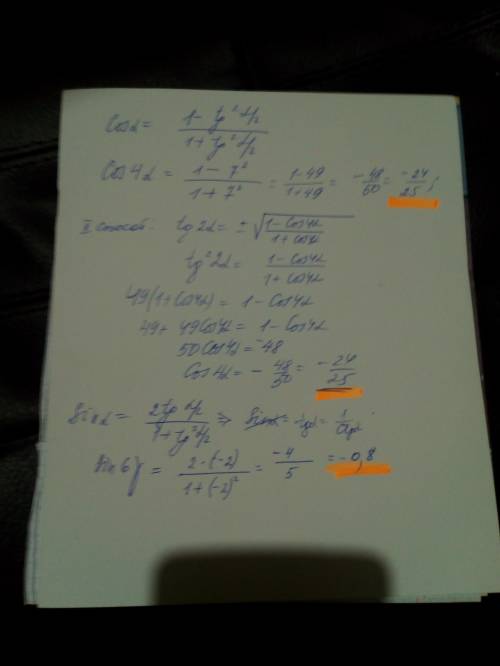 Cosα = (1 - tg²α/2) / (1 + tg²α/2)
Cos4α = (1 - 7²) / (1 + 7²) = (1-49) / (1+49) = -48/50 = -24/25;
II способ: tg2α = ±√((1-Cos4α) / (1+Cos4α))
tg²2α = (1-Cos4α) / (1+Cos4α)
49(1+Cos4α) = 1 - Cos4α
49 + 49Cos4α = 1 - Cos4α
50Cos4α = -48
Cos4α = -48/50 = -24/25
Sinα = (2tg α/2) / (1 + tg²α/2) ⇒
Sin6γ = (2·(-2)) / (1+(-2)²) = -4/5 = -0,8